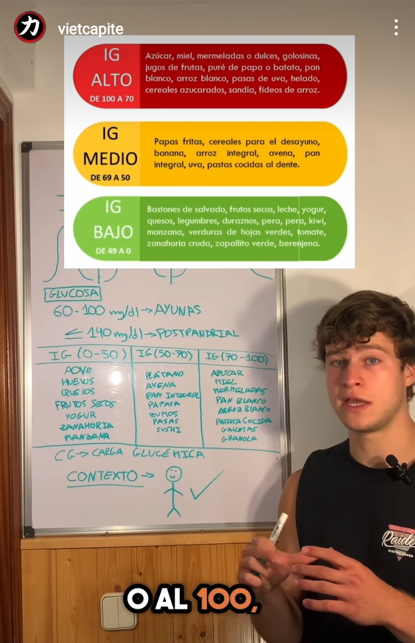 vietcapite
IG
ALTO
DE 100 A 70
Azúcar, miel, mermeladas o dulces, golosinas,
jugos de frutas, puré de papa o batata, pan
blanco, arroz blanco, pasas de uva, helado,
cereales azucarados, sandía, fideos de arroz.
IG
MEDIO
DE 69 A 50
Papas fritas, cereales para el desayuno,
banana, arroz integral, avena, pan
integral, uva, pastas cocidas al dente.
IG
BAJO
DE 49 A 0
Bastones de salvado, frutos secos, leche, yogur,
quesos, legumbres, duraznos, pera, pera, kiwi,
manzana, verduras de hojas verdes, tomate,
zanahoria cruda, zapallito verde, berenjena.
GLUCOSA
60-100 mg/dl → AYUNAS
≤ 140 mg/dl → POSTPANDRIAL
IG (0-50)
AOVE
HUEVOS
QUESOS
FRUTOS SECOS
YOGUR
ZANAHORIA
MANZANA
IG (50-70)
PLÁTANO
AVENA
PAN INTEGRAL
PAPAYA
ZUMOS
PASAS
SUSHI
IG (70-100)
AZÚCAR
MIEL
MERMELADAS
PAN BLANCO
ARROZ BLANCO
PATATA COCIDA
GALLETAS
GRANOLA
CG → CARGA GLUCÉMICA
CONTEXTO →
Raide
O AL 100,